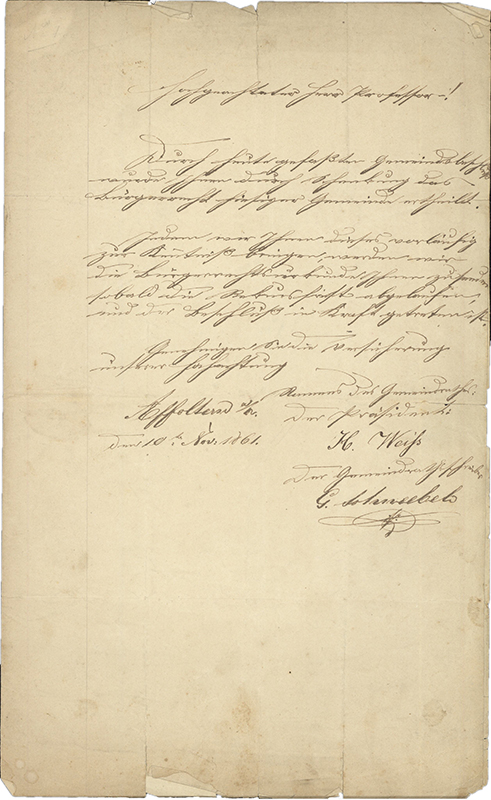 Hochgeachteter Herr Professor!
Durch heute gefaßten Gemeindsbeschluß
wurde Ihnen durch Schenkung das
Bürgerrecht hiesiger Gemeinde ertheilt.
Indem wir Ihnen dieses vorläufig
zur Kentniß bringen, werden wir
die Bürgerrechtsurkunde Ihnen zusenden
sobald die Rekursfrist abgelaufen,
und der Beschluß in Kraft getreten ist.
Genehmigen Sie die Versicherung
unserer Hochachtung
Namens des Gemeindrathes:
Affoltern a/A. Der Präsident:
den 10ten Nov. 1861. H. Weiss
Der Gemeindrathsschreiber
G. Schneebeli